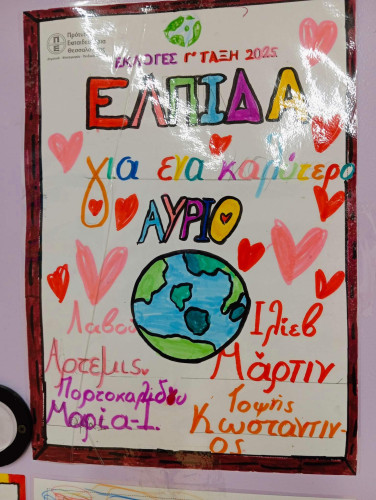 Πρότυπο
Εκπαιδευτήριο
Θεσσαλονίκης
ΕΚΛΟΓΕΣ Γ' ΤΑΞΗ 2025
ΕΛΠΙΔΑ
για ένα καλύτερο
ΑΥΡΙΟ
Λαβού
Αρτεμις
Ιλίεβ
Μάρτιν
Πορτοκαλίδου
Μαρία-Ι.
Τοψής
Κωσταντίν-
ος